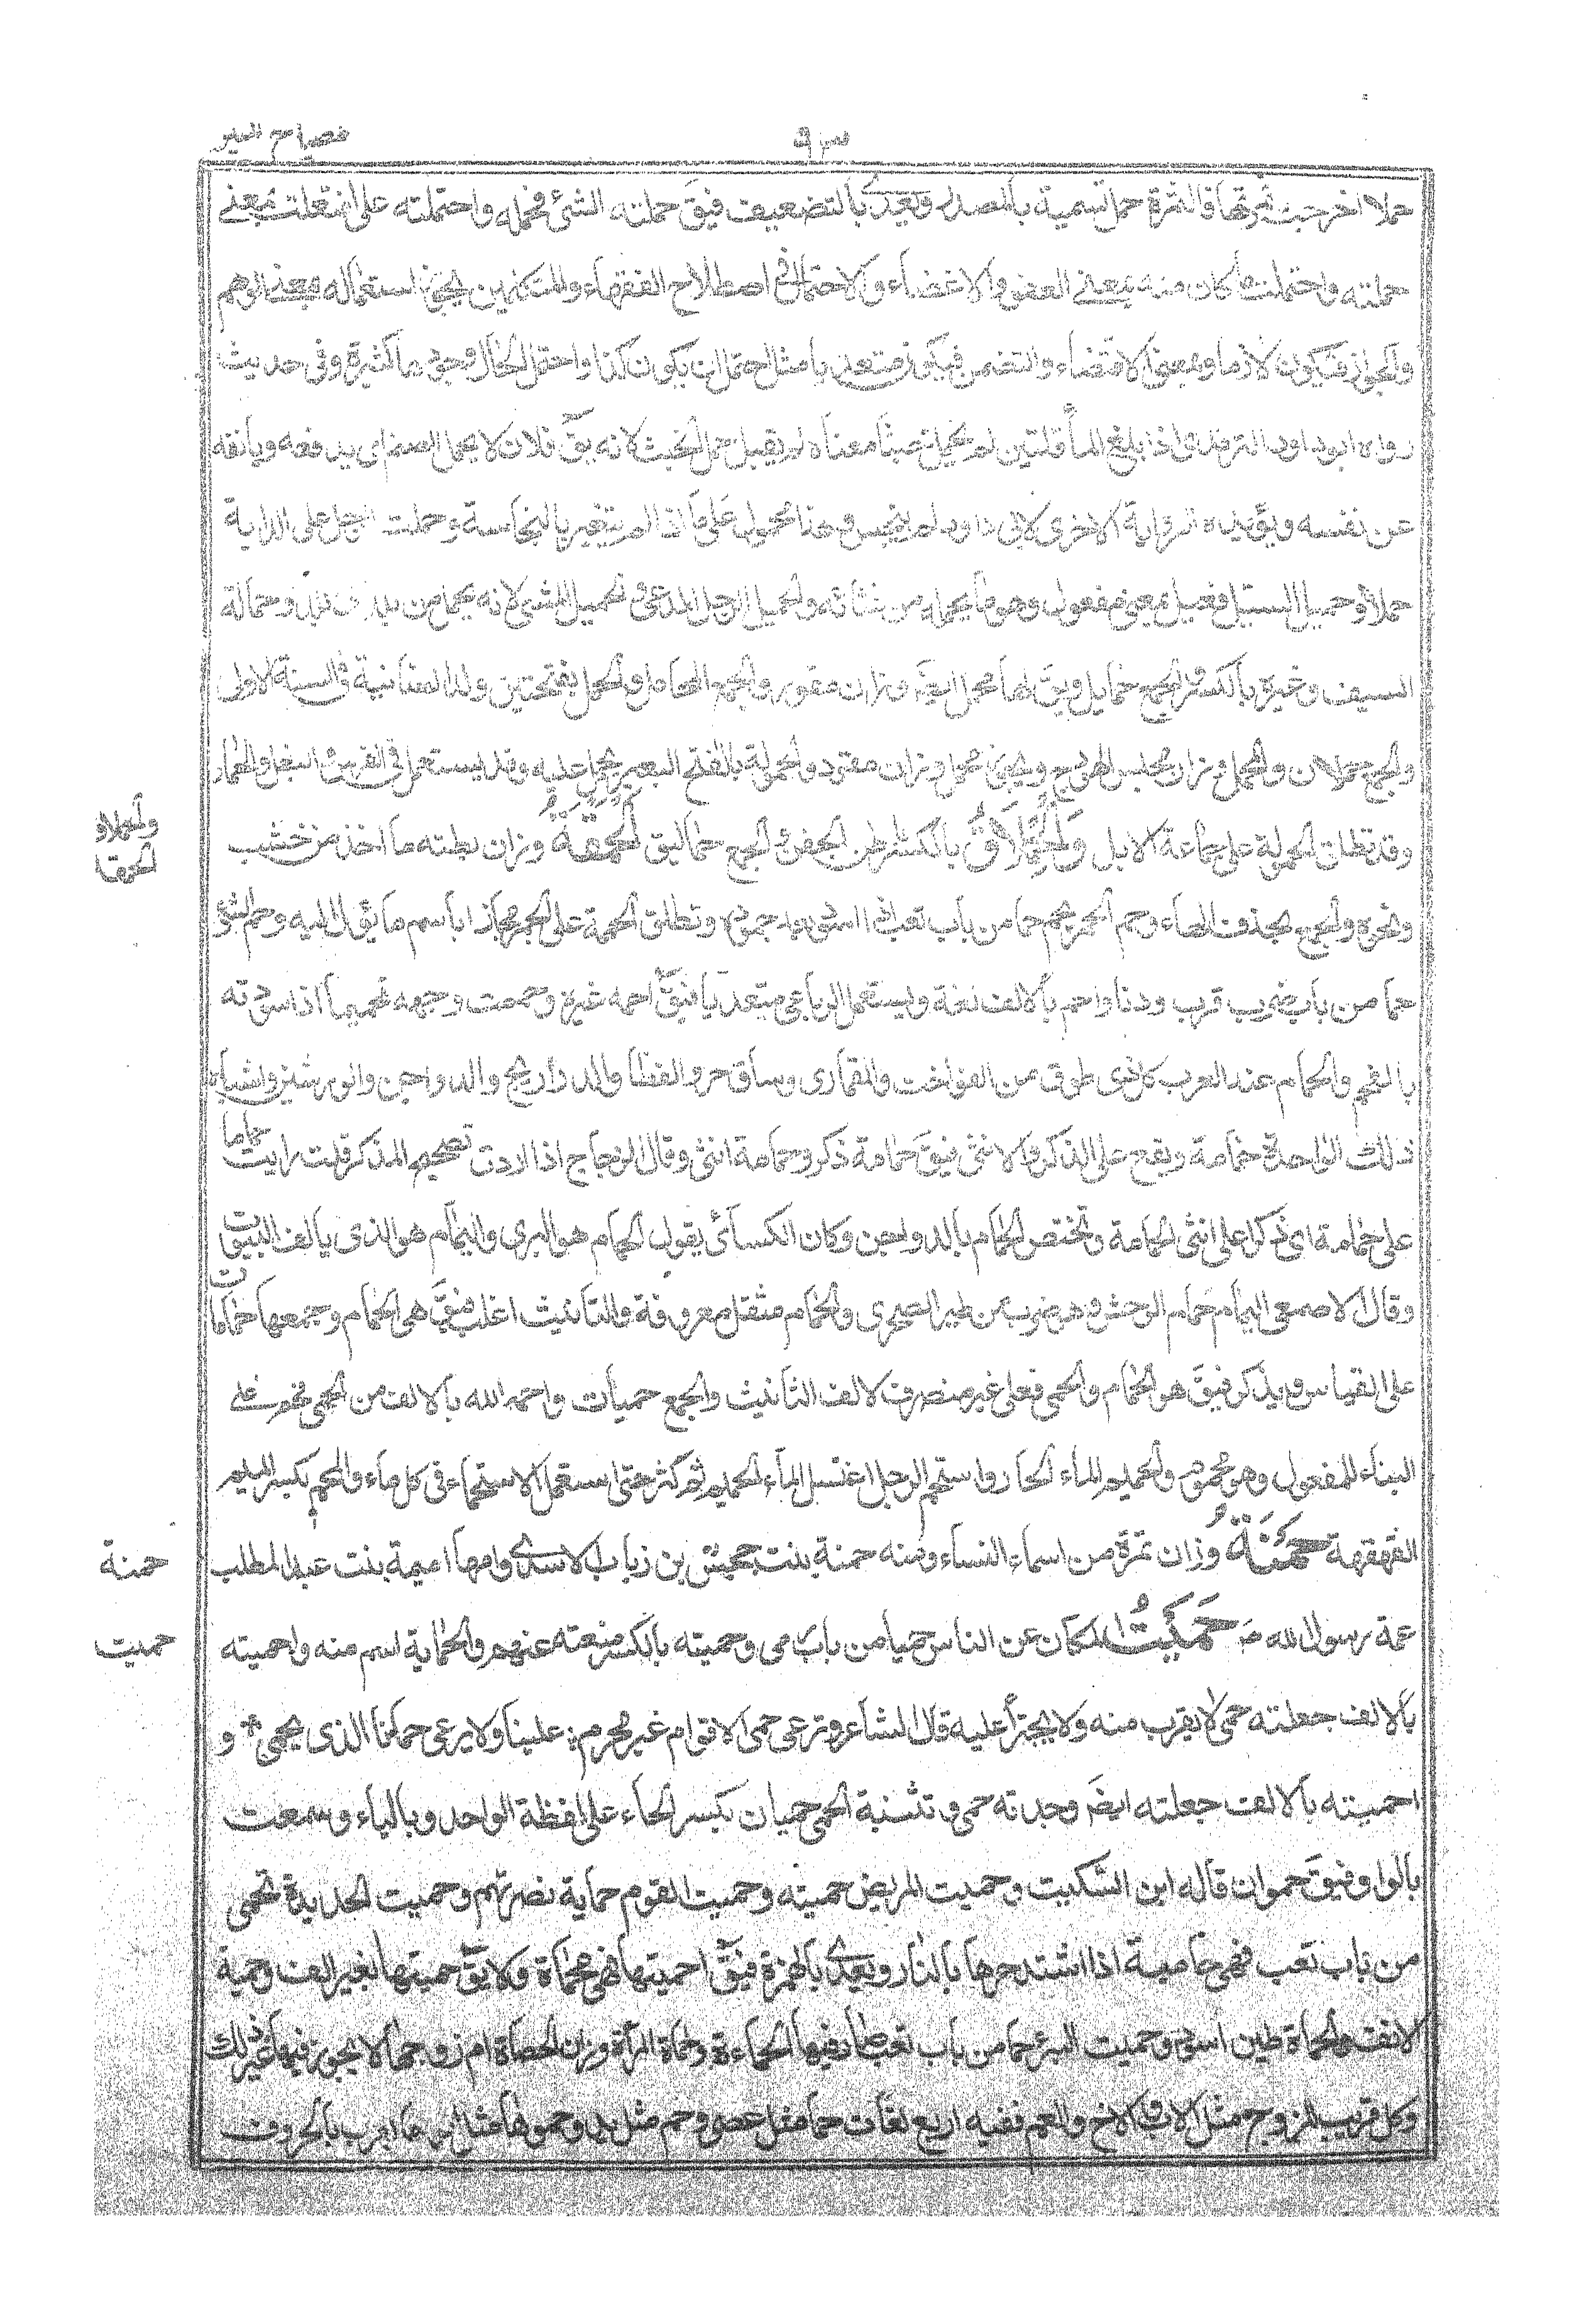 مصباح المنير
٩٣
حملا اخرجت ثمرتها فالثمرة حمل تسمية بالمصدر ويعدى بالتضعيف فيقَ حملته الشئ فحمله واحتملته على افتعلت بمعنى
حملته واحتملت ما كان منه بمعنى العفو والاغضاء والاحتمال فى اصطلاح الفقهاء والمتكلمين يجوز استعماله بمعنى الوهم
والجواز فيكون لازما وبمعنى الاقتضاء والتضمن فيكون متعديا مثل احتمل ان يكون كذا واحتمل الحال وجوها كثيرة وفى حديث
رواه ابو داود والترمذى اذا بلغ الماء قلتين لم يحمل خبثا معناه لم يقبل حمل الخبث لانه يقَ فلان لا يحمل الضيم اى يدفعه ويانفه
عن نفسه ويؤيده الرواية الاخرى لابى داود لم ينجس وهذا محمول على ما اذا لم يتغير بالنجاسة وحملت الرجل على الدابة
حملا وحميل السيل فعيل بمعنى مفعول وهو ما يحمله من غثائه والحميل الرجل الدعى والحميل المسبى لانه يحمل من بلد الى بلد وحمالة
السيف وغيره بالكسر والجمع حمايل ويقَ لها محمل ايضَ وزان مقود والجمع المحامل والحمل بفتحتين ولد الضانية فى السنة الاولى
والجمع حملان والمحمل وزان مجلس الهودج ويجوز محمل وزان مقود والحمولة بالفتح البعير يحمل عليه وقد يستعمل فى الفرس والبغل والحمار
وقد تطلق الحمولة على جماعة الابل وَالْحِمْلَاقُ بالكسر باطن الجفن والجمع حماليق اَلْحُمَمَةُ وزان رطبة ما احترق من خشب
ونحوه والجمع بحذف الهاء وحم الجمر يحم حما من باب تعب اذا اسود بعد جموده وتطلق الحممة على الجمر مجازا باسم ما يؤل اليه وحم الشئ
حما من باب ضرب قرب ودنا واحم بالالف لغة ويستعمل الرباعى متعديا فيقَ احمه غيره وحممت وجهه تحميما اذا سودته
بالفحم والحمام عند العرب كل ذى طوق من الفواخت والقمارى وساق حر والقطا والدواجن والوراشين واشباه
ذلك الواحدة حمامة ويقع على الذكر والانثى فيقَ حمامة ذكر وحمامة انثى وقال الزجاج اذا اردت تصحيح المذكر قلت رايت حماما
على حمامة اى ذكرا على انثى والعامة تختص الحمام بالدواجن وكان الكسائى يقول الحمام هو البرى واليمام هو الذى يالف البيوت
وقال الاصمعى اليمام حمام الوحش وهو ضرب من طير الصحرى والحمام مثقل معروفة والتانيث اغلب فيقَ هى الحمام وجمعها حمامات
على القياس ويذكر فيقَ هو الحمام والحمى فعلى غير منصرفة لالف التانيث والجمع حميات واحمه الله بالالف من الحمى فحم على
البناء للمفعول وهو محموم والحميم الماء الحار واستحم الرجل اغتسل بالماء الحميم ثم كثر حتى استعمل الاستحمام فى كل ماء والمحم بكسر الميم
القمقمة حَمْنَةُ وزان تمرة من اسماء النساء ومنه حمنة بنت جحش بن زياب الاسدى وامها اميمة بنت عبد المطلب
عمة رسول الله صَ حَمَيْتُ المكان عن الناس حميا من باب رمى وحميته بالكسر منعته عنهم والحماية اسم منه واحميته
بالالف جعلته حمى لا يقرب منه ولا يجترأ عليه قال الشاعر وترعى حمى الاقوام غير محرم ؛ علينا ولا يرعى حمانا الذى يحمى * و
احميته بالالف جعلته ايضَ وجدته حمى وتثنية الحمى حميان بكسر الحاء على لفظة الواحد وبالياء وسمعت
بالواو فيقَ حموان قاله ابن السكيت وحميت المريض حميته وحميت القوم حماية نصرتهم وحميت الحديدة تحمى
من باب تعب فهى حامية اذا اشتد حرها بالنار ويعدى بالهمزة فيقَ احميتها فهى محماة ولا يقَ حميتها بغير الف وحمية
الانف والحماة طين اسود وحميت البئر حما من باب تعب صار فيها الحماءة وحماة المرأة وزان الحصاة ام زوجها لا يجوز فيها غير ذلك
وكل قريب للزوج مثل الاب والاخ والعم ففيه اربع لغات حما مثل عصى وحم مثل يد وحموها مثل ابوها يعرب بالحروف
والحملاق
الحمقا
حمنة
حميت